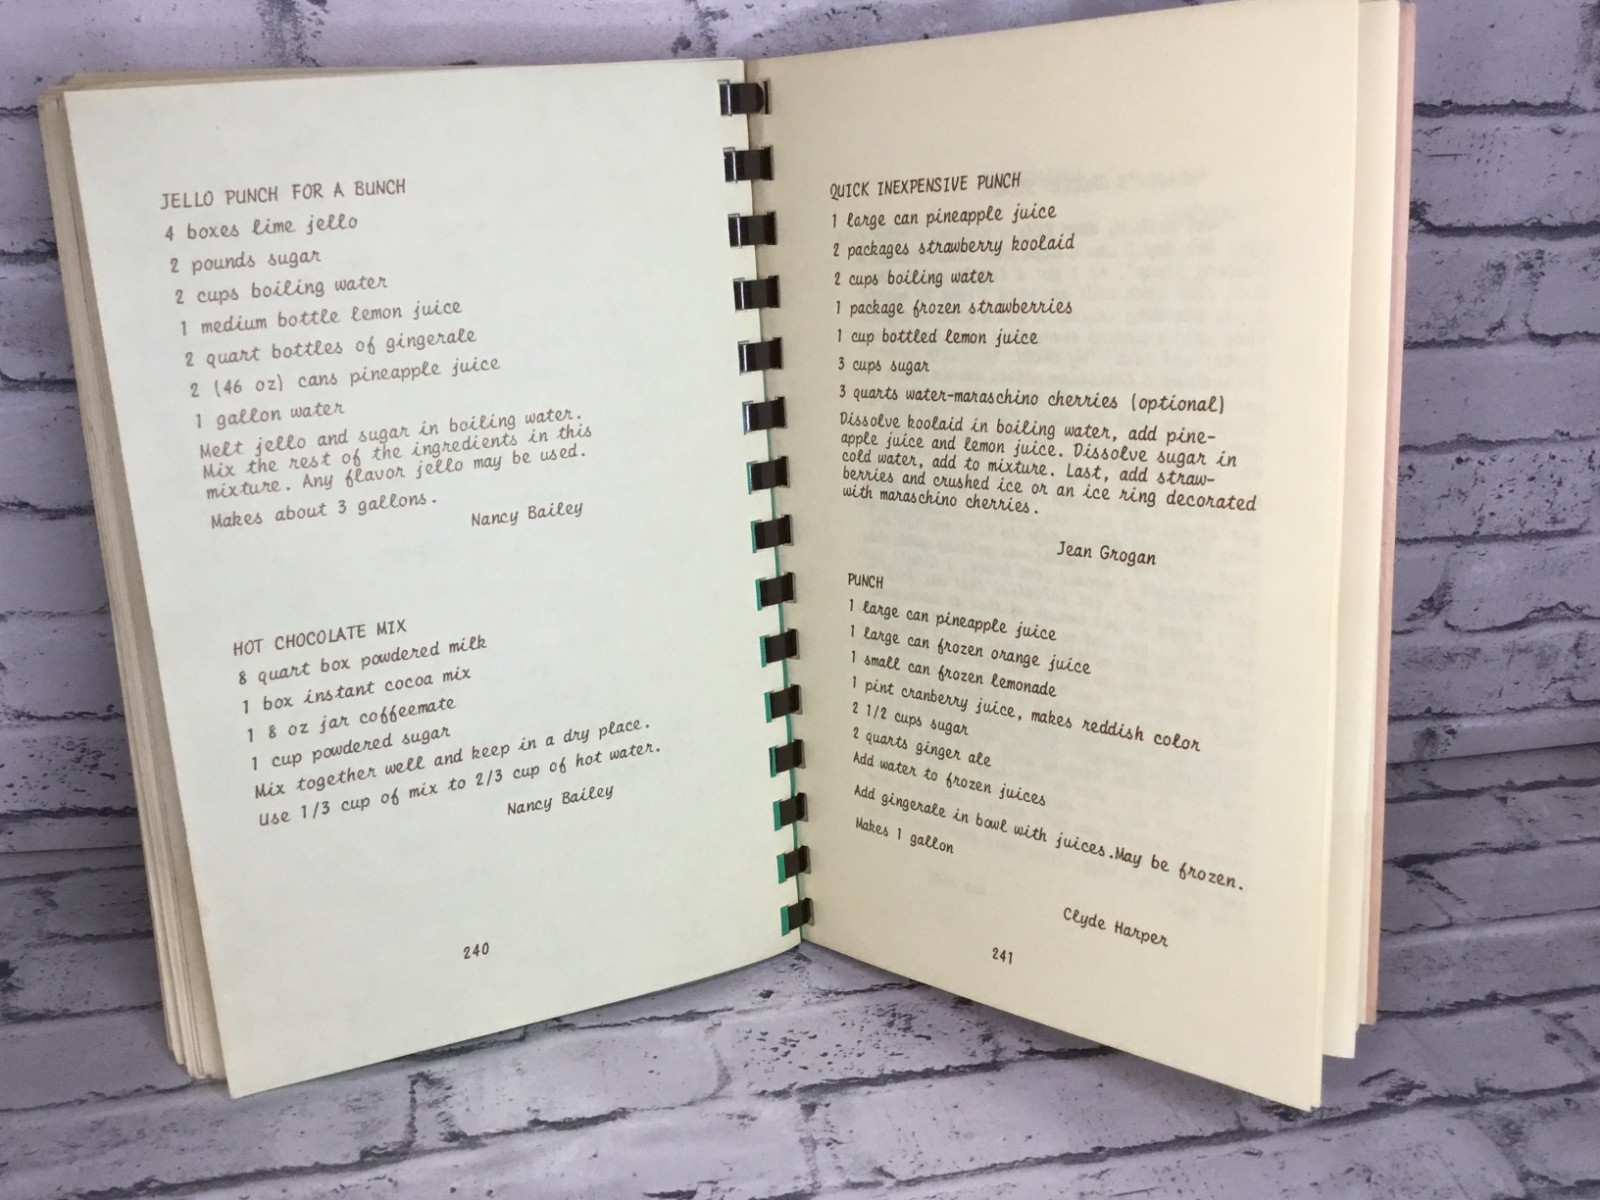 JELLO PUNCH FOR A BUNCH
4 boxes lime jello
2 pounds sugar
2 cups boiling water
1 medium bottle lemon juice
2 quart bottles of gingerale
2 (46 oz) cans pineapple juice
1 gallon water
Melt jello and sugar in boiling water.
Mix the rest of the ingredients in this
mixture. Any flavor jello may be used.
Makes about 3 gallons.
Nancy Bailey
HOT CHOCOLATE MIX
8 quart box powdered milk
1 box instant cocoa mix
1 8 oz jar coffeemate
1 cup powdered sugar
Mix together well and keep in a dry place.
Use 1/3 cup of mix to 2/3 cup of hot water.
Nancy Bailey
240
QUICK INEXPENSIVE PUNCH
1 large can pineapple juice
2 packages strawberry koolaid
2 cups boiling water
1 package frozen strawberries
1 cup bottled lemon juice
3 cups sugar
3 quarts water-maraschino cherries (optional)
Dissolve koolaid in boiling water, add pine-
apple juice and lemon juice. Dissolve sugar in
cold water, add to mixture. Last, add straw-
berries and crushed ice or an ice ring decorated
with maraschino cherries.
Jean Grogan
PUNCH
1 large can pineapple juice
1 large can frozen orange juice
1 small can frozen lemonade
1 pint cranberry juice, makes reddish color
2 1/2 cups sugar
2 quarts ginger ale
Add water to frozen juices
Add gingerale in bowl with juices.May be frozen.
Makes 1 gallon
Clyde Harper
241